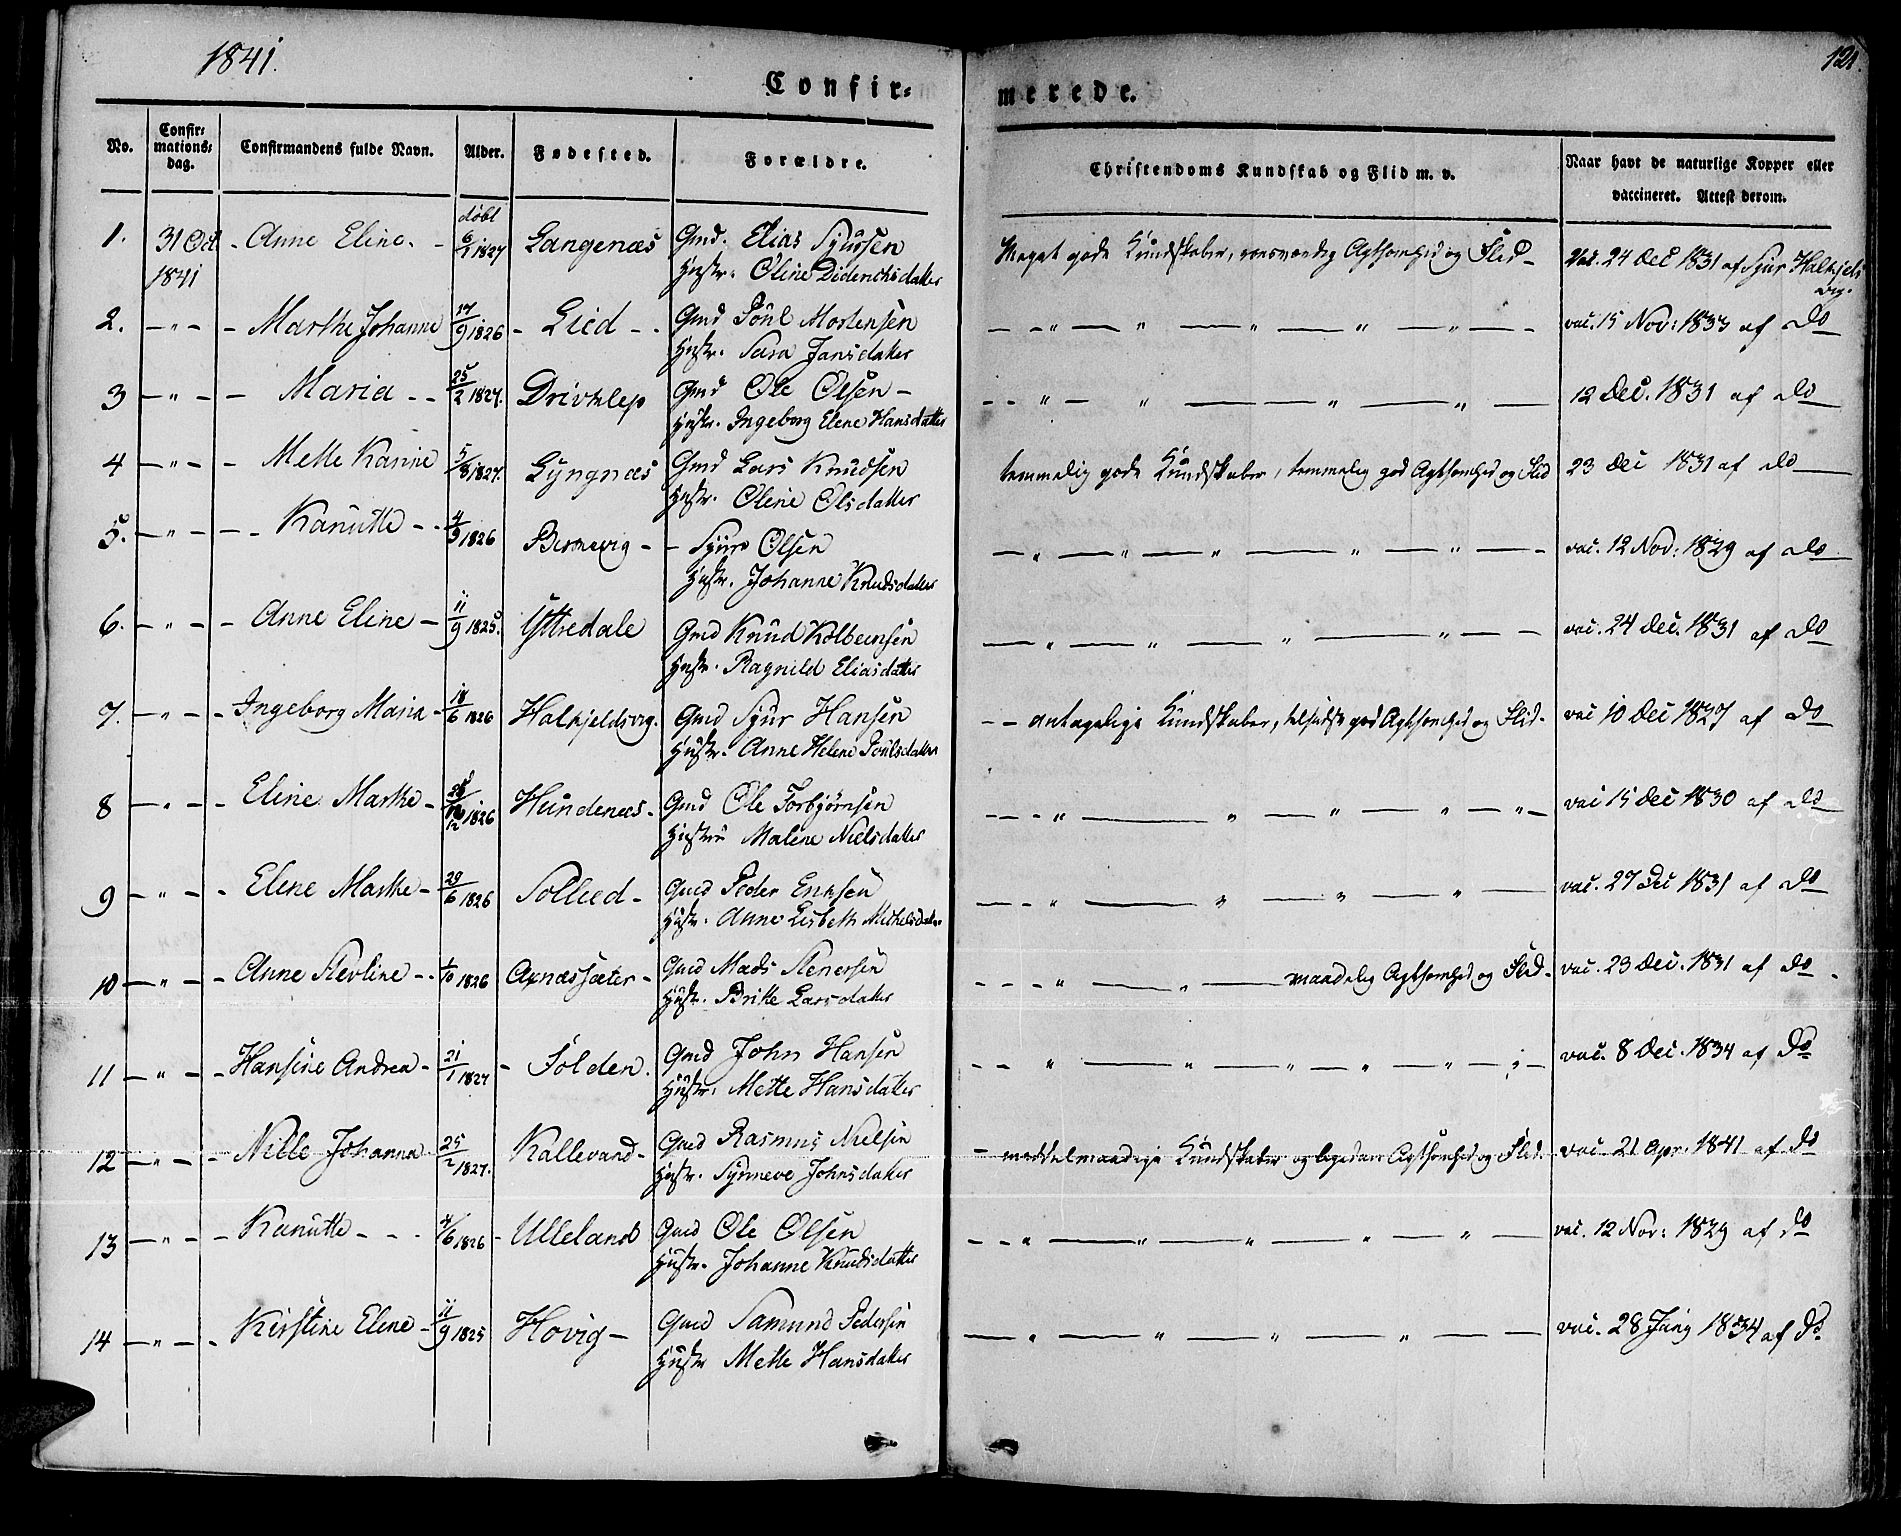 1841.
121.
Confir-
merede.
No. | Confir-mations-dag. | Confirmandens fulde Navn. | Alder. | Fødested. | Forældre. | Christendoms Kundskab og Flid m. v. | Naar havt de naturlige Kopper eller vaccineret. Attest derom.
døbt
1. | 31 Oct 1841 | Anne Eline | 1827 | Langenæs | Gmd. Elias Syursen | Meget gode Kundskaber, Agtsomhed og Flid | Vac. 24 Dec 1831 af Syur Halkjelsvig.
Hustr. Oline Didericksdatter
2. | " | Marthe Johanne | 17/9 1826 | Lied | Gmd Poul Mortensen | " " " " " | vac. 15 Nov: 1833 af do
Hustr. Sara Jansdatter
3 | " | Maria | 25/2 1827. | Drivklep | Gmd Ole Olsen | " " " " | 12 Dec. 1831 af do
Hustr. Ingeborg Elene Hansdatter
4 | " | Mette Karine | 5/8 1827. | Lyngnæs | Gmd Lars Knudsen | temmelig gode Kundskaber, temmelig god Agtsomhed og Flid | 23 Dec 1831 af do
Hustr. Oline Olsdatter
5. | " | Kanutte | 4/9 1826 | Birknevig | Syur Olsen | " " " " " | vac. 12 Nov: 1829 af do
Hustr. Johanne Knudsdatter
6. | " | Anne Eline | 11/9 1825. | Yttredale | Gmd Knud Kolbeinsen | " " " " | vac. 24 Dec. 1831 af do
Hustr. Ragnild Eliasdatter
7. | " | Ingeborg Maria | 18/6 1826 | Halkjeldsvig. | Gmd Syur Hansen | antagelige Kundskaber, god Agtsomhed og Flid. | vac 10 Dec 1827 af do
Hustr. Anne Helene Poulsdatter
8 | " | Eline Marthe | 1826 | Hundenæs. | Gmd Ole Torbjørnsen | " " " " " | vac 15 Dec 1830 af do
Hustru Malene Nielsdatter
9 | " | Elene Marthe | 29/6 1826 | Sollied | Gmd Peder Enksen | " " " " | vac. 27 Dec 1831 af do
Hustr. Anne Lisbeth Michelsdatter
10 | " | Anne Stevline | 1/10 1826 | Aarnæssæter | Gmd Mads Stenersen | " " maadelig Agtsomhed og Flid. | vac. 23 Dec. 1831 af do
Hustr. Britte Larsdatter
11 | " | Hansine Andrea | 21/1 1827 | Folden. | Gmd John Hansen | " " " " " | vac. 8 Dec. 1834 af do
Hustr. Mette Hansdatter
12 | " | Nille Johanna | 25/2 1827. | Kallevand | Gmd Rasmus Nielsen | middelmaadige Kundskaber og ligedan Agtsomhed og Flid. | vac. 21 Apr. 1841 af do
Hustr. Synneve Johnsdatter
13 | " | Kanutte | 4/6 1826 | Ulleland | Gmd Ole Olsen | " " " " " | vac. 12 Nov: 1829 af do
Hustr. Johanne Knudsdatter
14 | " | Kirstine Elene | 11/9 1825 | Hovig | Gmd Samund Pedersen | " " " " | vac. 28 1834 af do
Hustr Mette Hansdatter